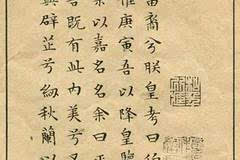 裔兮朕皇考曰伯
惟庚寅吾以降皇覽
余以嘉名名余曰正
吾既有此內美兮又
與辟芷兮紉秋蘭以